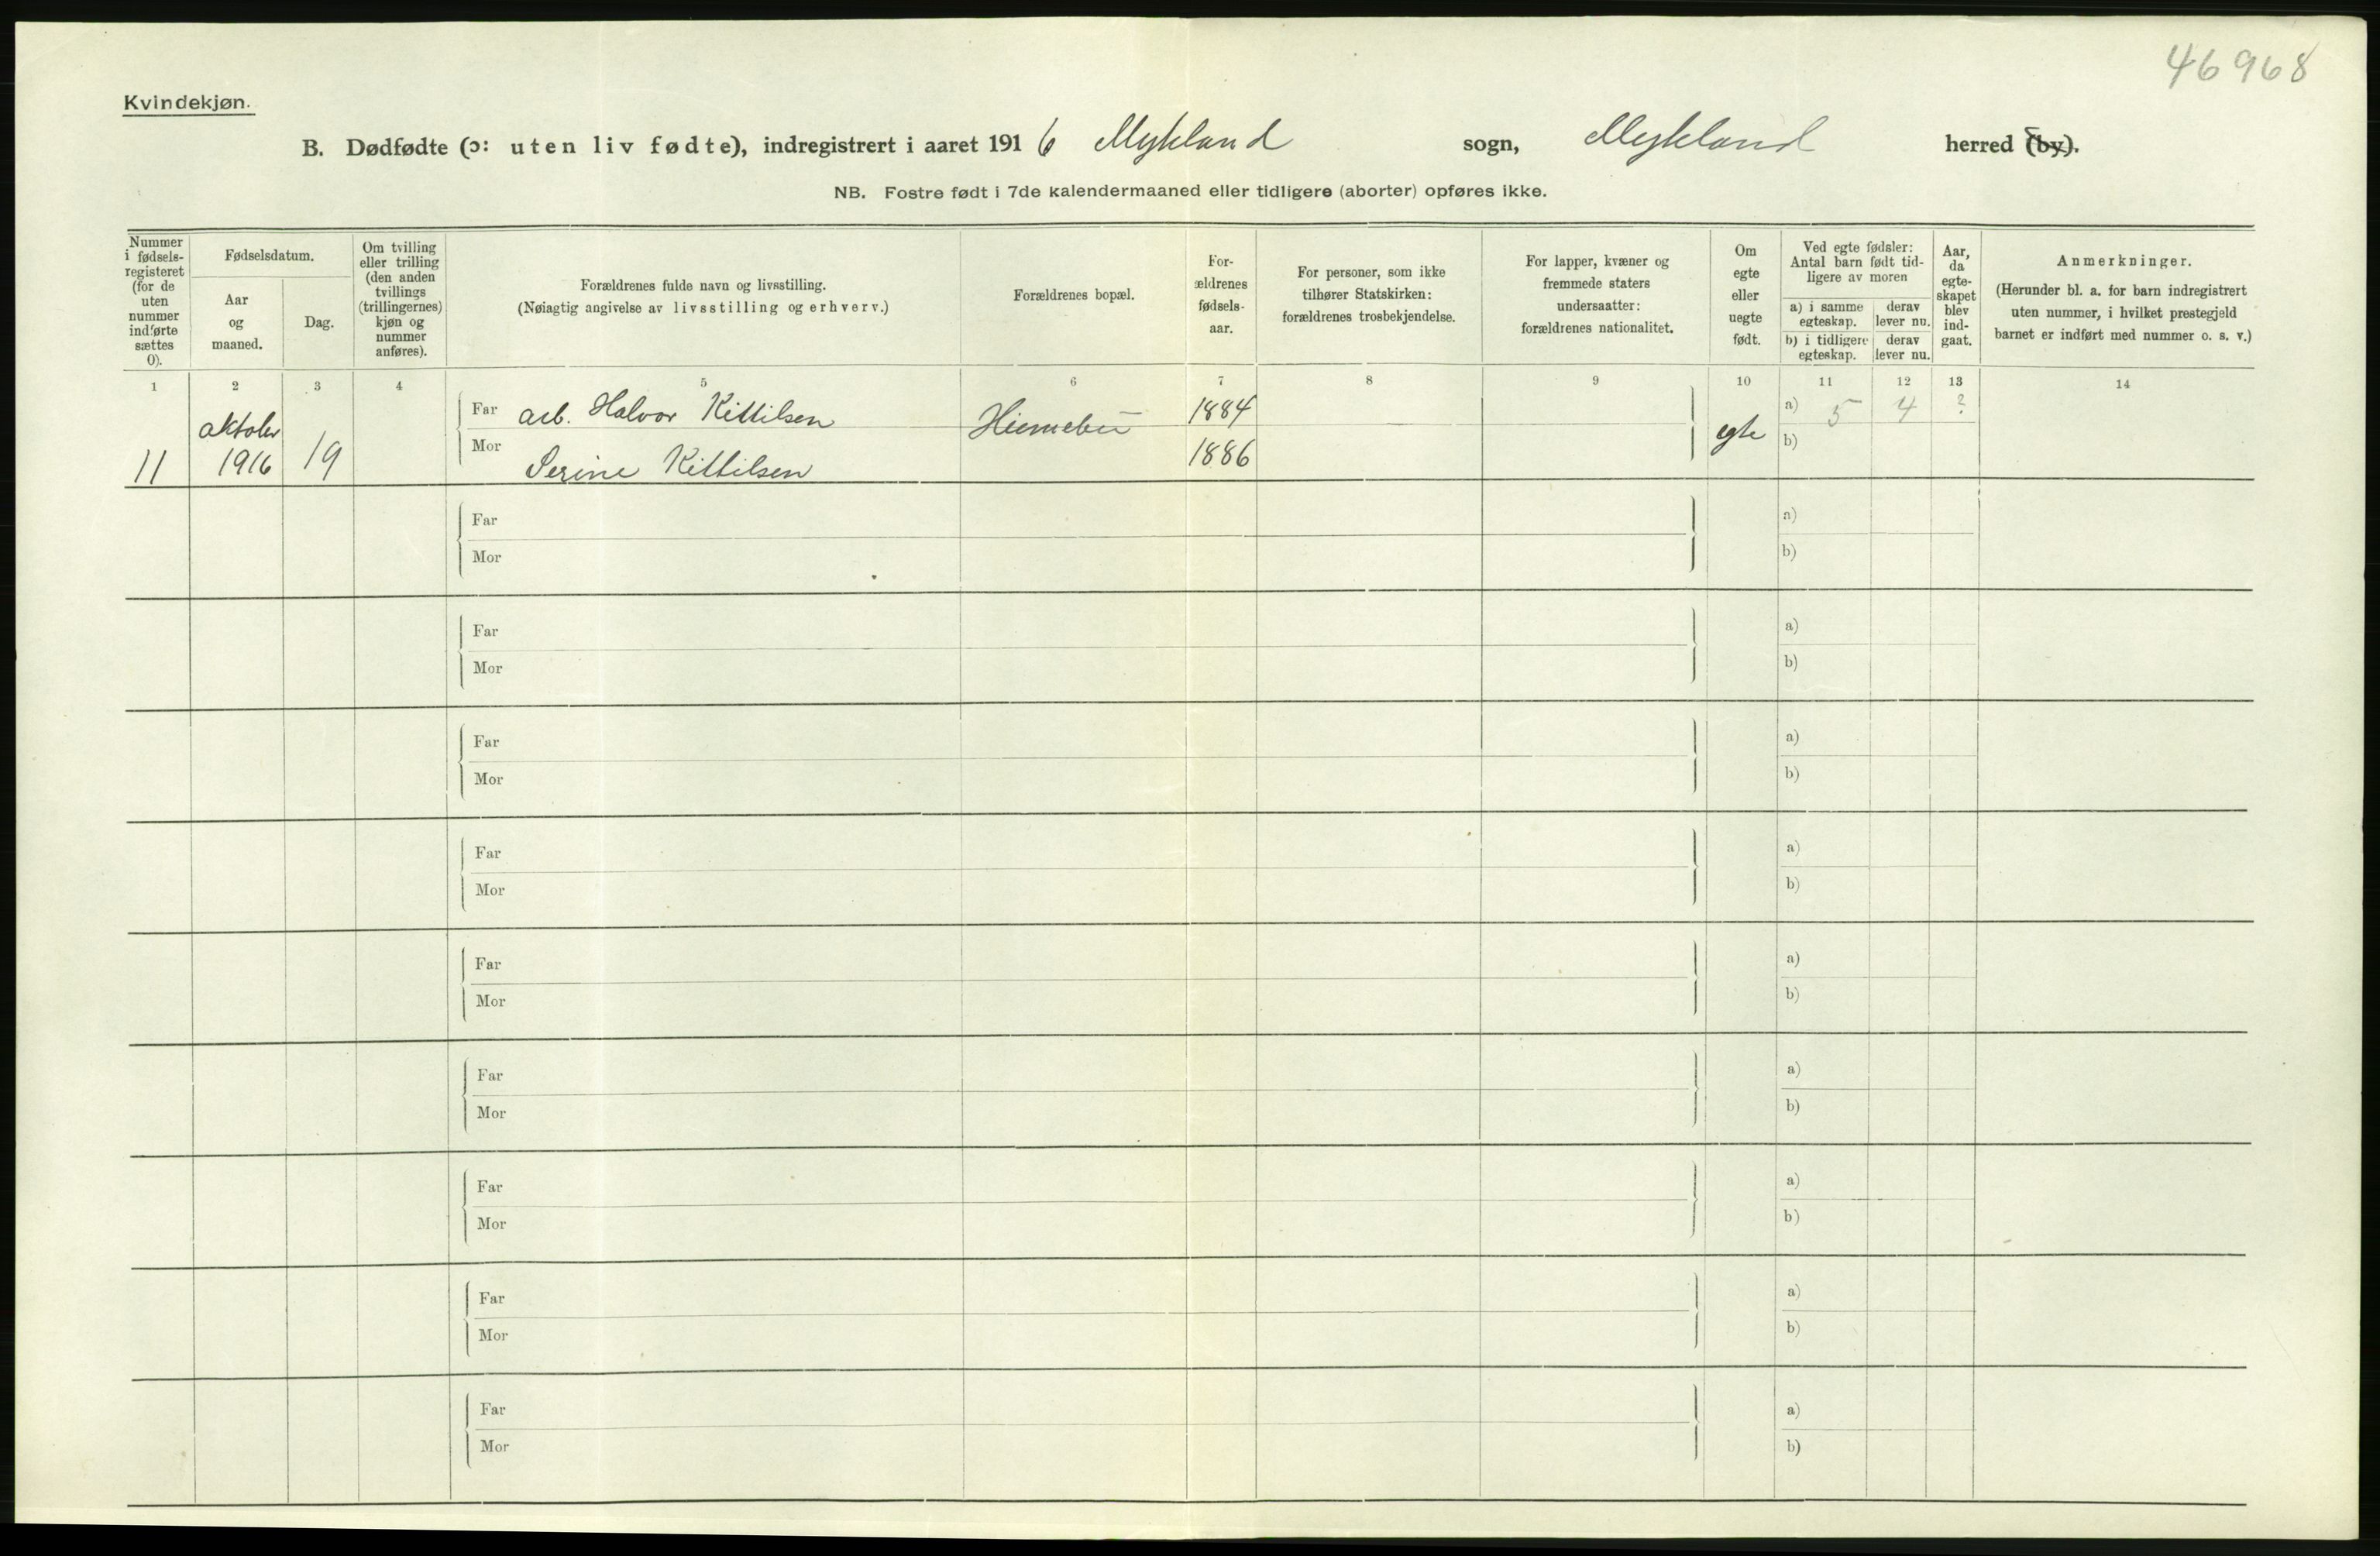 46968
Kvindekjøn.
B. Dødfødte (ɔ: uten liv fødte), indregistrert i aaret 1916 Mykland sogn, Mykland herred (by).
NB. Fostre født i 7de kalendermaaned eller tidligere (aborter) opføres ikke.
Nummer
i fødsels-
registeret
(for de
uten
nummer
indførte
sættes
0).
Fødselsdatum.
Aar
og
maaned.
Dag.
Om tvilling
eller trilling
(den anden
tvillings
(trillingernes)
kjøn og
nummer
anføres).
Forældrenes fulde navn og livsstilling.
(Nøiagtig angivelse av livsstilling og erhverv.)
Forældrenes bopæl.
For-
ældrenes
fødsels-
aar.
For personer, som ikke
tilhører Statskirken:
forældrenes trosbekjendelse.
For lapper, kvæner og
fremmede staters
undersaatter:
forældrenes nationalitet.
Om
egte
eller
uegte
født.
Ved egte fødsler:
Antal barn født tid-
ligere av moren
a) i samme
egteskap.
derav
lever nu.
b) i tidligere
egteskap.
derav
lever nu.
Aar,
da
egte-
skapet
blev
ind-
gaat.
Anmerkninger.
(Herunder bl. a. for barn indregistrert
uten nummer, i hvilket prestegjeld
barnet er indført med nummer o. s. v.)
1 2 3 4 5 6 7 8 9 10 11 12 13 14
Far arb. Halvor Kittilsen 1884 a) 5 4 ?
oktober
11 1916 19 egte
Mor Serine Kittilsen 1886 b)
Far a)
Mor b)
Far a)
Mor b)
Far a)
Mor b)
Far a)
Mor b)
Far a)
Mor b)
Far a)
Mor b)
Far a)
Mor b)
Far a)
Mor b)
Far a)
Mor b)